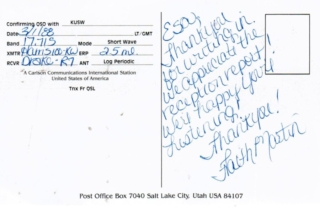 Confirming QSO with KUSW
Date 3/1/88 LT/GMT
Band 17.715 Mode Short Wave
XMTR ERP 25 mi.
RCVR Drake-R7 ANT Log Periodic
A Carlson Communications International Station
United States of America
Tnx Fr QSL
Esa,
Thank you
for writing in.
We appreciate the
reception report!
Very happy you're
listening.
Thank you!
Faith Martin
Post Office Box 7040 Salt Lake City, Utah USA 84107